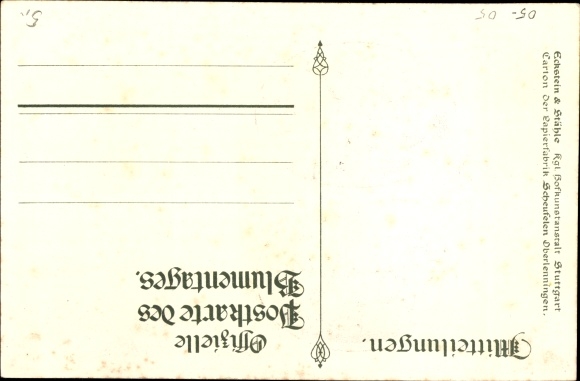 Offizielle
Postkarte des
Blumentages.
Mitteilungen.
Eckstein & Stähle Kgl. Hofkunstanstalt Stuttgart
Carton der Papierfabrik Scheufelen Oberlenningen.
50 - 50
5,-